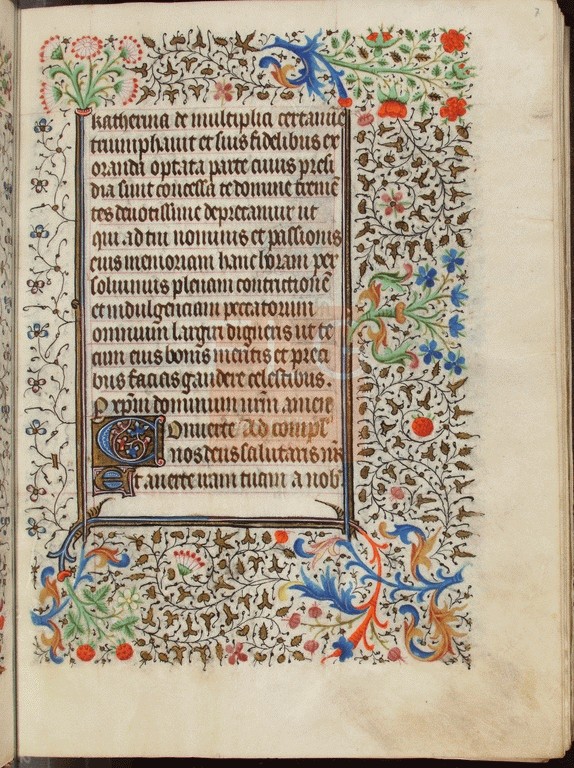 7
katherina de multiplici certamine
triumphauit et suis fidelibus ex
orandi optata parte cuius presi
dia sunt concessa te domine tremē
tes deuotissime deprecamur ut
qui ad tui nominis et passionis
eius memoriam hanc horam per
soluimus plenam contrictionē
et indulgenciam peccatorum
omnium largiri digneris ut te
cum eius bonis meritis et preci
bus faciis gaudere celestibus.
P xp̄m dominum nr̄m amen
Conuerte Ad comple
nos deus salutaris nr̄
Et auerte iram tuam a nob